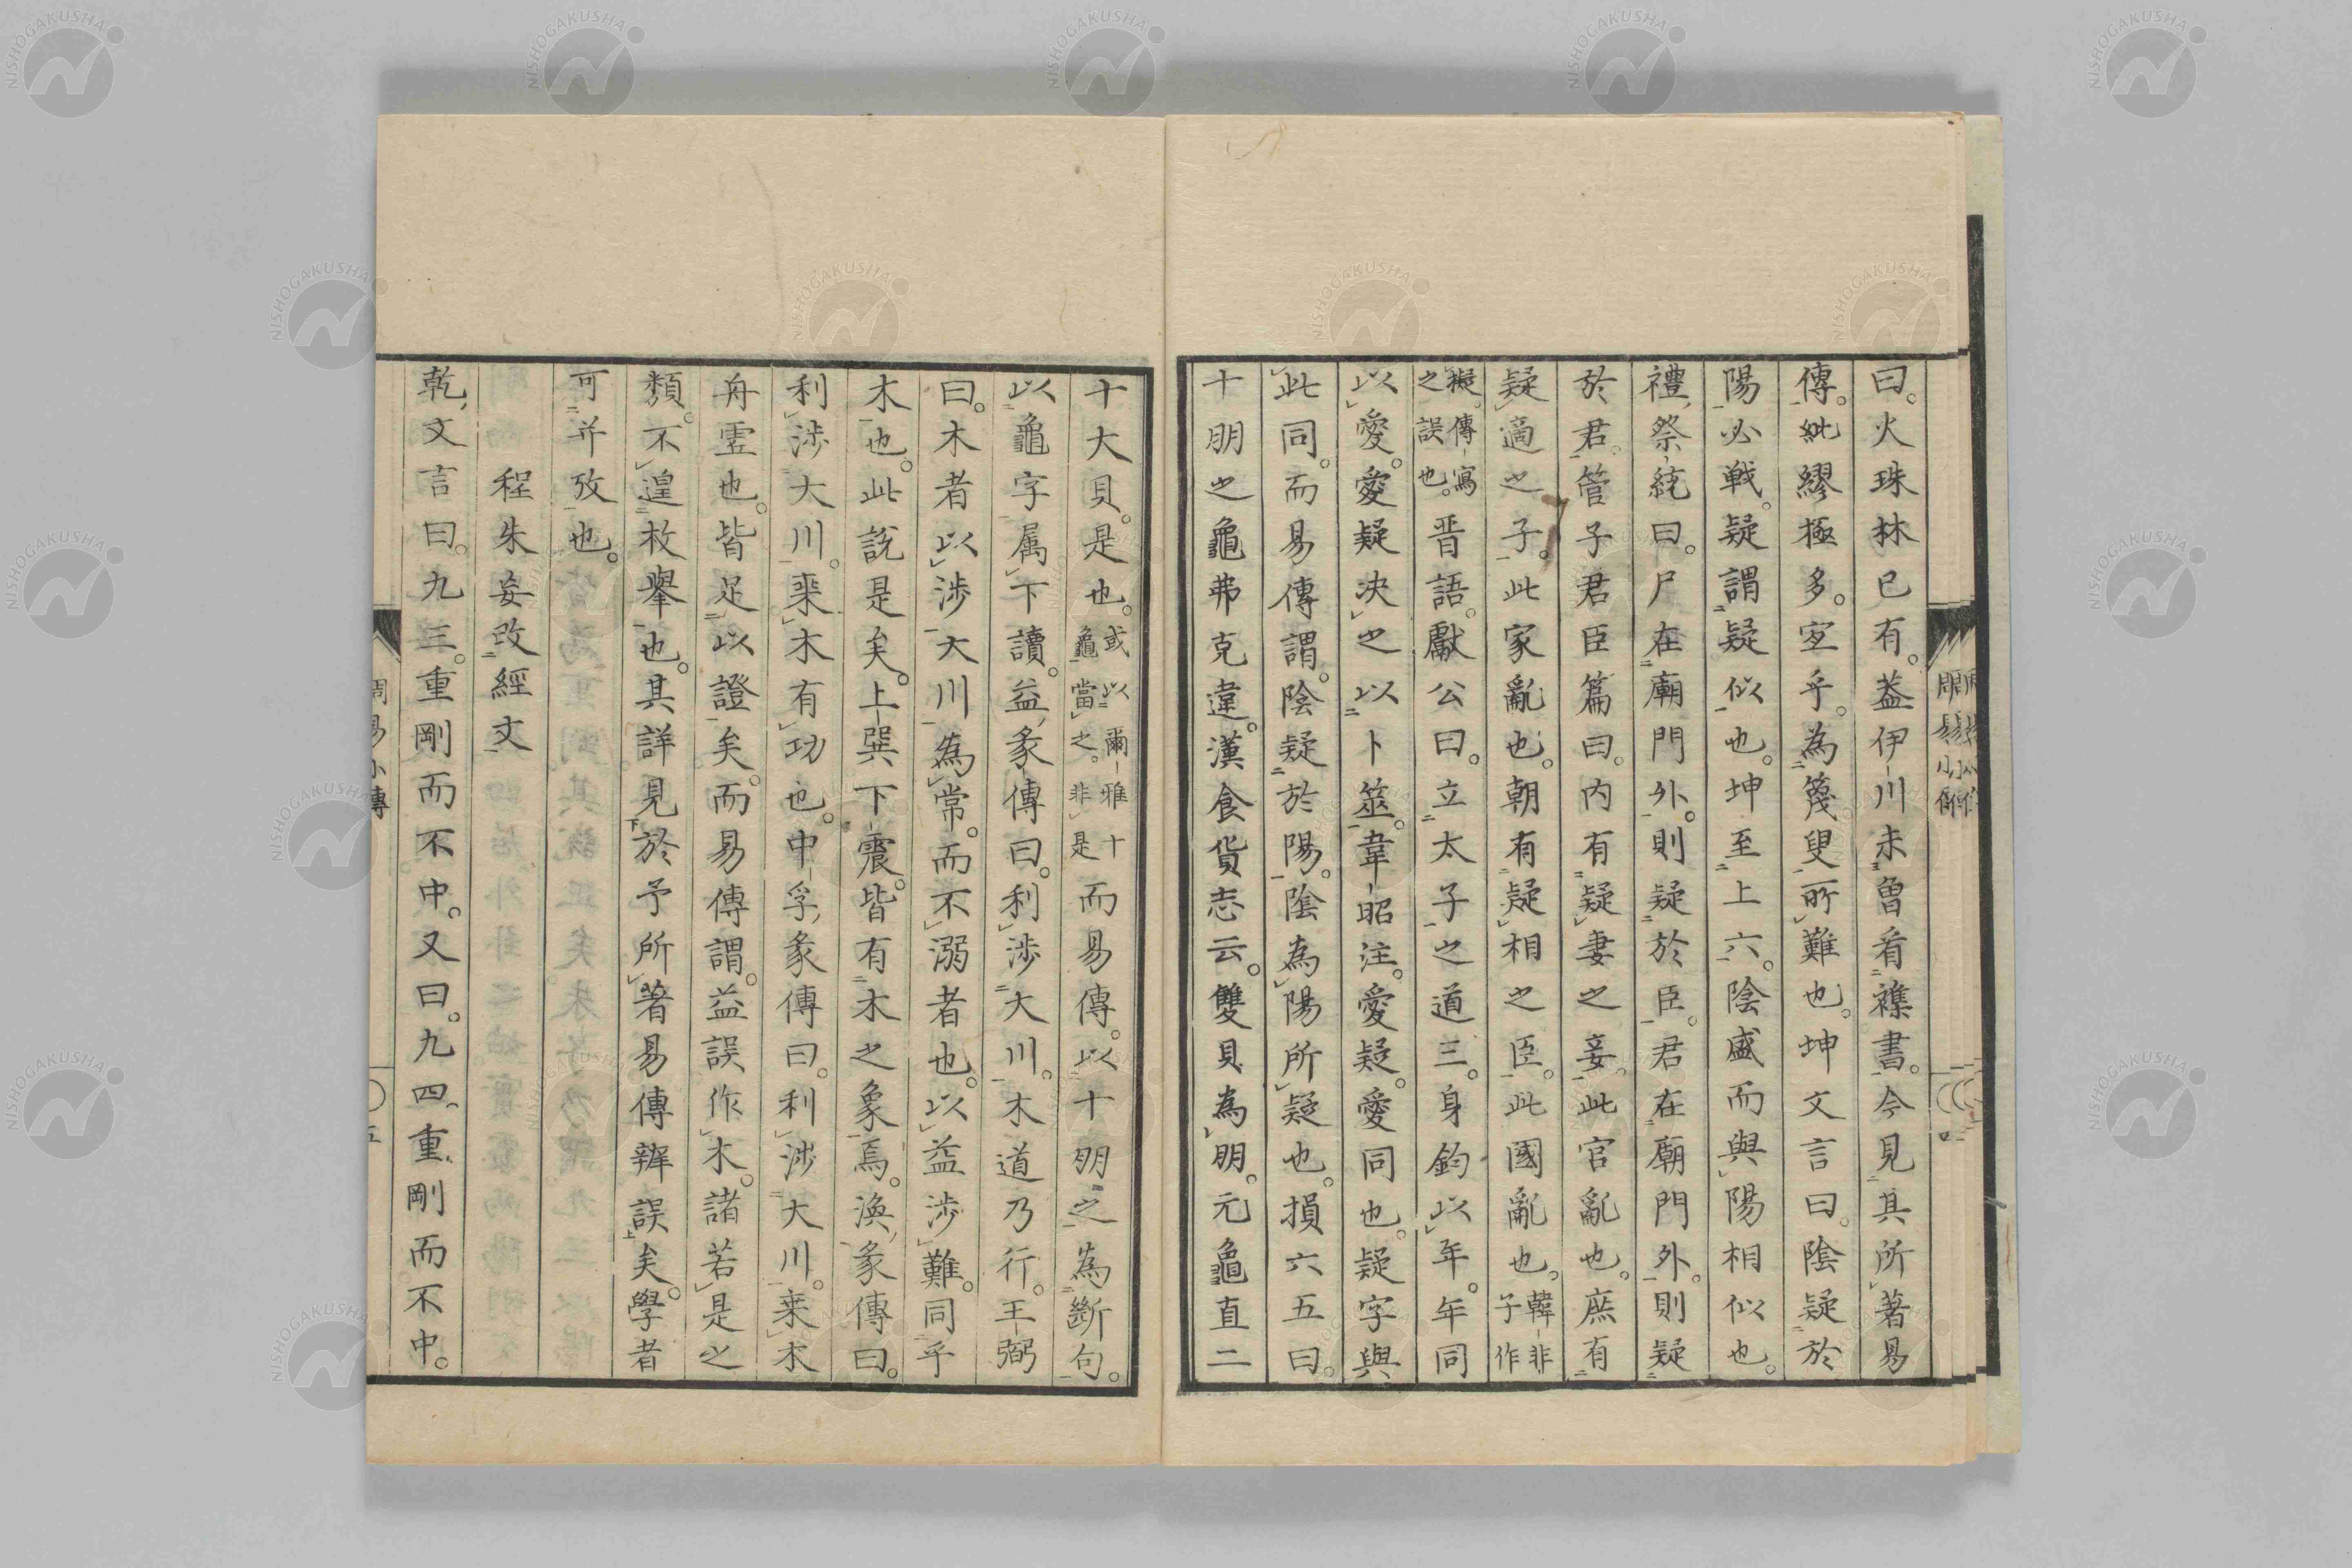 曰。火珠林已有。蓋伊川未曽看襍書。今見其所著易
傳。紕繆極多。宐乎。為篾叟所難也。坤文言曰。陰疑於
陽必戦。疑謂疑似也。坤至上六。陰盛而與陽相似也。
禮祭統曰。尸在廟門外。則疑於臣。君在廟門外。則疑
於君。管子君臣篇曰。内有疑妻之妾。此官亂也。庶有
疑適之子。此家亂也。朝有疑相之臣。此國亂也。韓非子作
擬。傳寫之誤也。晋語。獻公曰。立太子之道三。身鈞以年。年同
以愛。愛疑决之以卜筮。韋昭注。愛疑。愛同也。疑字與
此同。而易傳謂。陰疑於陽。陰為陽所疑也。損六五曰。
十朋之龜弗克違。漢食貨志云。雙貝為朋。元龜直二
十大貝。是也。或以爾雅十龜當之。非是而易傳。以十朋之為斷句。
以龜字属下讀。益彖傳曰。利渉大川。木道乃行。王弼
曰。木者以渉大川為常。而不溺者也。以益渉難。同乎
木也。此説是矣。上巽下震。皆有木之象焉。渙彖傳曰。
利渉大川。乗木有功也。中孚彖傳曰。利渉大川。乗木
舟虚也。皆足以證矣。而易傳謂。益誤作木。諸若是之
類。不遑枚擧也。其詳見於予所著易傳辨誤矣。學者
可并攷也。
程朱妄改經文
乾文言曰。九三。重剛而不中。又曰。九四。重剛而不中。
周易小傳
五
NISHOGAKUSHA